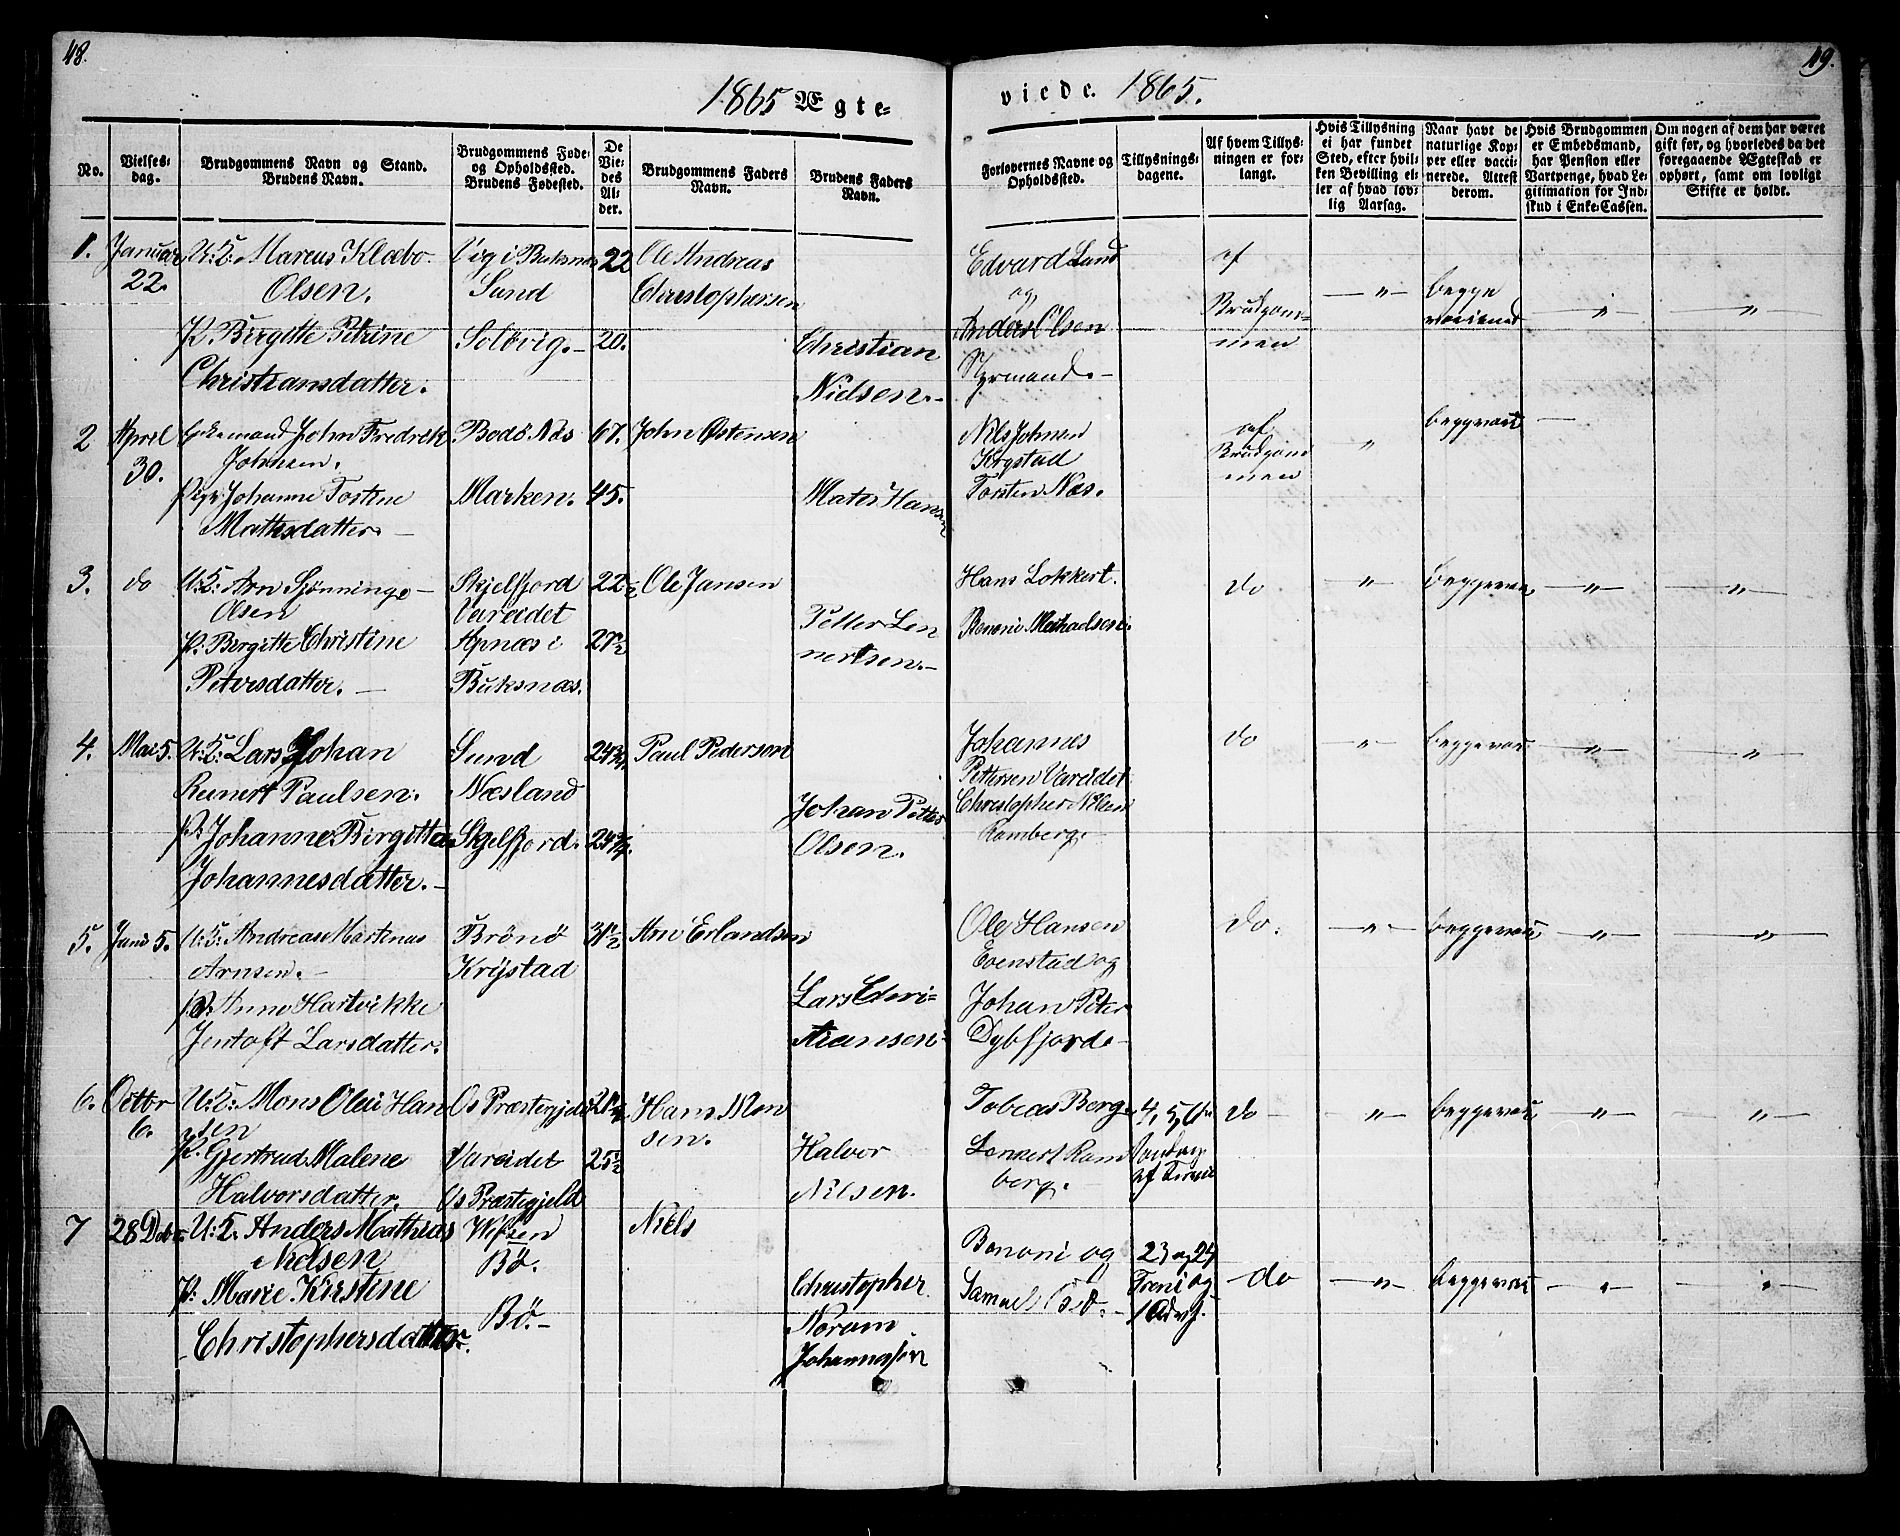 48.
49.
1865 Ægte-
viede. 1865.
No.
Vielses-
dag.
Brudgommens Navn og Stand.
Brudens Navn.
Brudgommens Føde-
og Opholdssted.
Brudens Fødested.
De
Vie-
des
Al-
der.
Brudgommens Faders
Navn.
Brudens Faders
Navn.
Forlovernes Navne og
Opholdssted.
Tillysnings-
dagene.
Af hvem Tillys-
ningen er for-
langt.
Hvis Tillysning
ei har fundet
Sted, efter hvil-
ken Bevilling el-
ler af hvad lov-
lig Aarsag.
Naar havt de
naturlige Kop-
per eller vacci-
nerede. Attest
derom.
Hvis Brudgommen
er Embedsmand,
har Pension eller
Vartpenge, hvad Le-
gitimation for Ind-
skud i Enke-Cassen.
Om nogen af dem har været
gift før, og hvorledes da det
foregaaende Ægteskab er
ophørt, samt om lovligt
Skifte er holdt.
1.
Januar
22.
U:K: Marcus Klæbo
Olsen.
P. Birgitte Petrine
Christiansdatter.
Vig i Buksnæs
Sund
Solbvig.
22
20.
Ole Andreas
Christophersen
Christian
Nielsen.
Edvard Sund
og
Anders Olsen
Styrmand.
af
Brudgom-
men
"
begge
"
"
2
April
30.
Enkemand John Fredrik
Johnsen.
Pige Johanne Tostine
Mathsdatter.
Bodö Næs
Marken.
67.
45.
John Østensen
Mats Hansen
Nils Johnsen
Krystad
Torsten Næs.
af
Brudgom
men
"
begge vac
3.
do
U:K: Arn Sjønninge
Olsen
P. Bergitte Christine
Petersdatter.
Skjelfjord
Vareidet
Apnæs i
Buksnæs.
22½
27½
Ole Jansen
Petter Len
nertsen.
Hans Lokkert.
Benoni Mikaelsen
do
"
begge vac
"
"
4.
Mai 5.
U:K: Lars Johan
Reinert Paulsen.
P. Johanne Birgitta
Johannesdatter.
Sund
Næsland
Skjelfjord.
24¾
24¾.
Paul Pedersen
Johan Petter
Olsen.
Johannes
Pettersen Vareidet
Christopher Nilsen
Ramberg.
do
"
begge vac
"
"
5.
Juni 5.
U:K: Andreas Martinus
Arnsen.
P. Anne Hartvikke
Jentoft Larsdatter.
Brönö
Krystad
31½
Arn Erlandsen
Lars Chri-
stiansen
Ole Hansen
Evenstad og
Johan Peter
Dybfjord
do.
"
begge vac
"
"
6.
Octbr
6.
U:K: Mons Olai Han
sen
P. Gjertrud Malene
Halvorsdatter.
Os Præstegjeld
Vareidet
Os Præstegjeld
25½
Hans Mon
sen.
Halvor
Nilsen.
Tobias Berg
Lennert Ram
berg.
4, 5, 6te
Søndag
af Trinit
do
"
begge vac
"
"
7
28 Debr
U:K. Anders Mathias
Nielsen
P: Marie Kirstine
Christophersdatter.
Vefsen
Bö.
Bö.
Niels
Christopher
Norum
Johannessen
Benoni og
Samuel Bö.
23 og 24
Treni og
1 Adv.
do
"
begge vac
"
"